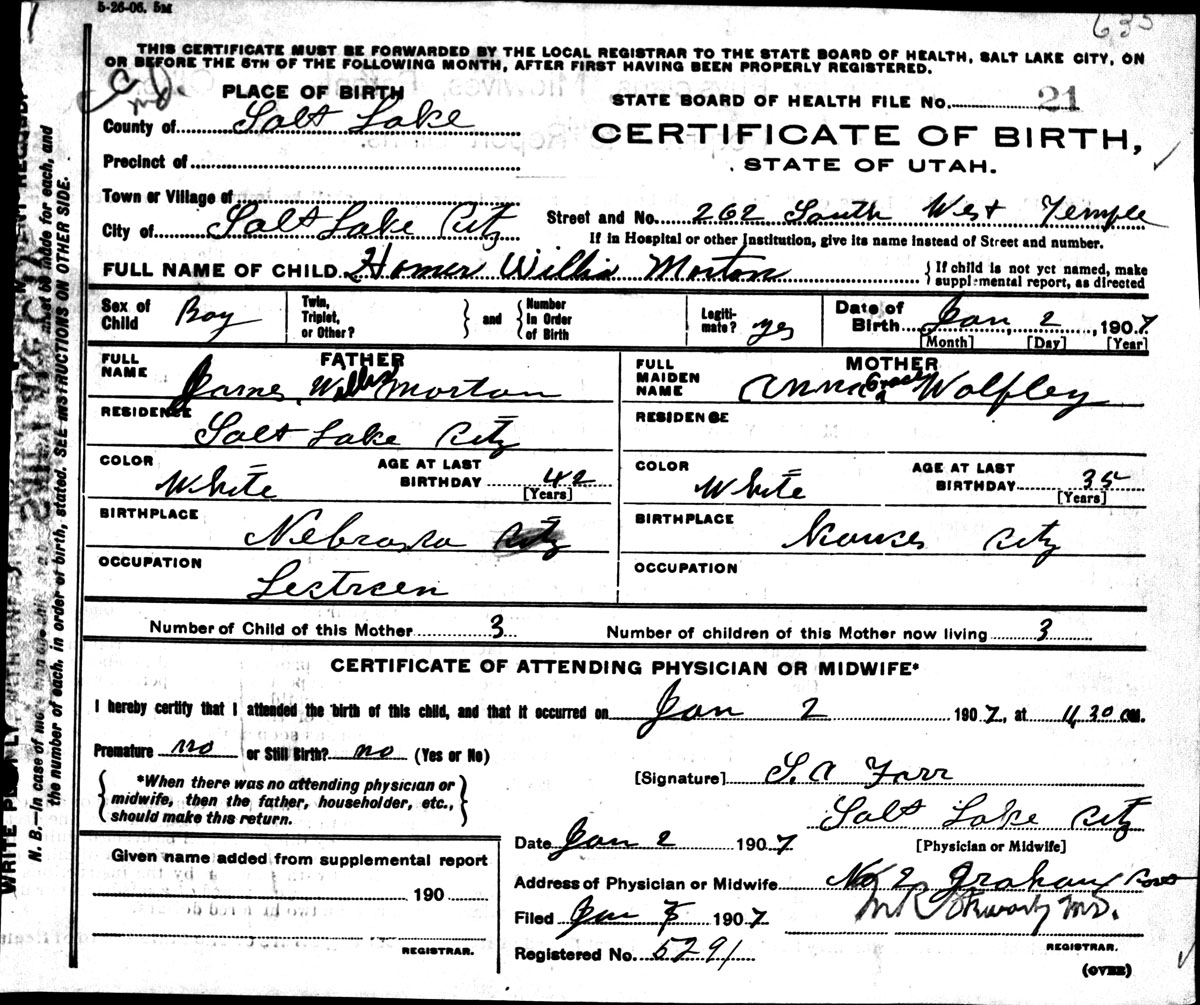 5-26-06. 5M
635
THIS CERTIFICATE MUST BE FORWARDED BY THE LOCAL REGISTRAR TO THE STATE BOARD OF HEALTH, SALT LAKE CITY, ON
OR BEFORE THE 5TH OF THE FOLLOWING MONTH, AFTER FIRST HAVING BEEN PROPERLY REGISTERED.
PLACE OF BIRTH
STATE BOARD OF HEALTH FILE No. 21
County of Salt Lake
CERTIFICATE OF BIRTH,
Precinct of
STATE OF UTAH.
Town or Village of
City of Salt Lake City
Street and No. 262 South West Temple
If in Hospital or other Institution, give its name instead of Street and number.
FULL NAME OF CHILD Homer Willis Morton
{ If child is not yet named, make
supplemental report, as directed
Sex of Child Boy
Twin, Triplet, or Other? } and { Number in Order of Birth
Legiti-mate? yes
Date of Birth Jan 2, 1907
[Month] [Day] [Year]
FATHER
FULL NAME James Willis Morton
MOTHER
FULL MAIDEN NAME Anna Grace Wolfley
RESIDENCE Salt Lake City
RESIDENCE
COLOR White
AGE AT LAST BIRTHDAY 42
[Years]
COLOR White
AGE AT LAST BIRTHDAY 35
[Years]
BIRTHPLACE Nebraska City
BIRTHPLACE Kansas City
OCCUPATION
OCCUPATION
Number of Child of this Mother 3
Number of children of this Mother now living 3
CERTIFICATE OF ATTENDING PHYSICIAN OR MIDWIFE*
I hereby certify that I attended the birth of this child, and that it occurred on Jan 2 1907, at 11 30 am.
Premature no or Still Birth? no (Yes or No)
{ *When there was no attending physician or
midwife, then the father, householder, etc.,
should make this return. }
[Signature] S. A Farr
Salt Lake City
[Physician or Midwife]
Date Jan 2 1907
Given name added from supplemental report
190
REGISTRAR.
Address of Physician or Midwife No 2 Graham
Filed Jan 1907
M.D.
REGISTRAR.
Registered No. 5291
(OVER)
N. B.—In case of more than one child at a birth, must be made for each, and
the number of each, in order of birth, stated. SEE INSTRUCTIONS ON OTHER SIDE.